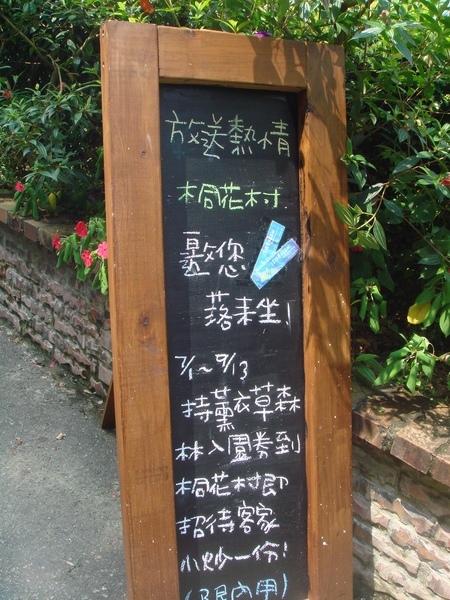 放送熱情
桐花村
邀您
落來坐！
7/1~9/13
持薰衣草森
林入園券到
桐花村即
招待客家
小炒一份！
(限內用)